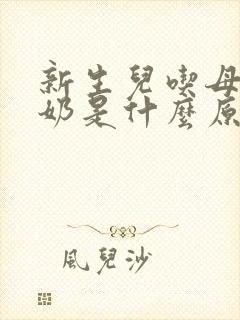 新生兒喫母
奶是什麼原
風兒沙